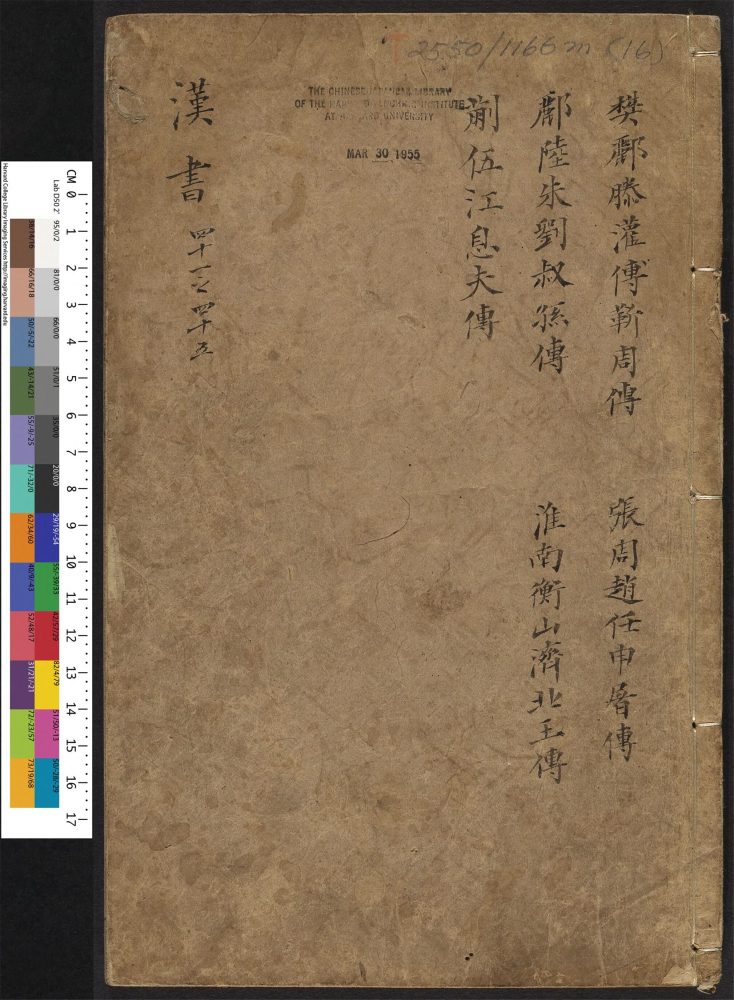 T 2550/1166m (16)
THE CHINESE-JAPANESE LIBRARY
OF THE HARVARD-YENCHING INSTITUTE
AT HARVARD UNIVERSITY
MAR 30 1955
樊酈滕灌傅靳周傳
張周趙任申屠傳
酈陸朱劉叔孫傳
淮南衡山濟北王傳
蒯伍江息夫傳
漢書 四十一之四十五
CM 0 1 2 3 4 5 6 7 8 9 10 11 12 13 14 15 16 17
Lab D50 2° 95/0/2 81/0/0 66/0/0 51/0/1 35/0/0 20/0/0 29/19/-54 55/-39/33 42/57/29 82/4/79 51/50/-13 50/-28/-29
38/14/16 66/16/18 50/-5/-22 43/-14/21 55/-9/-25 71/-32/0 62/34/60 40/9/-43 52/48/17 31/21/-21 72/-23/57 73/19/68
Harvard College Library Imaging Services http://imaging.harvard.edu